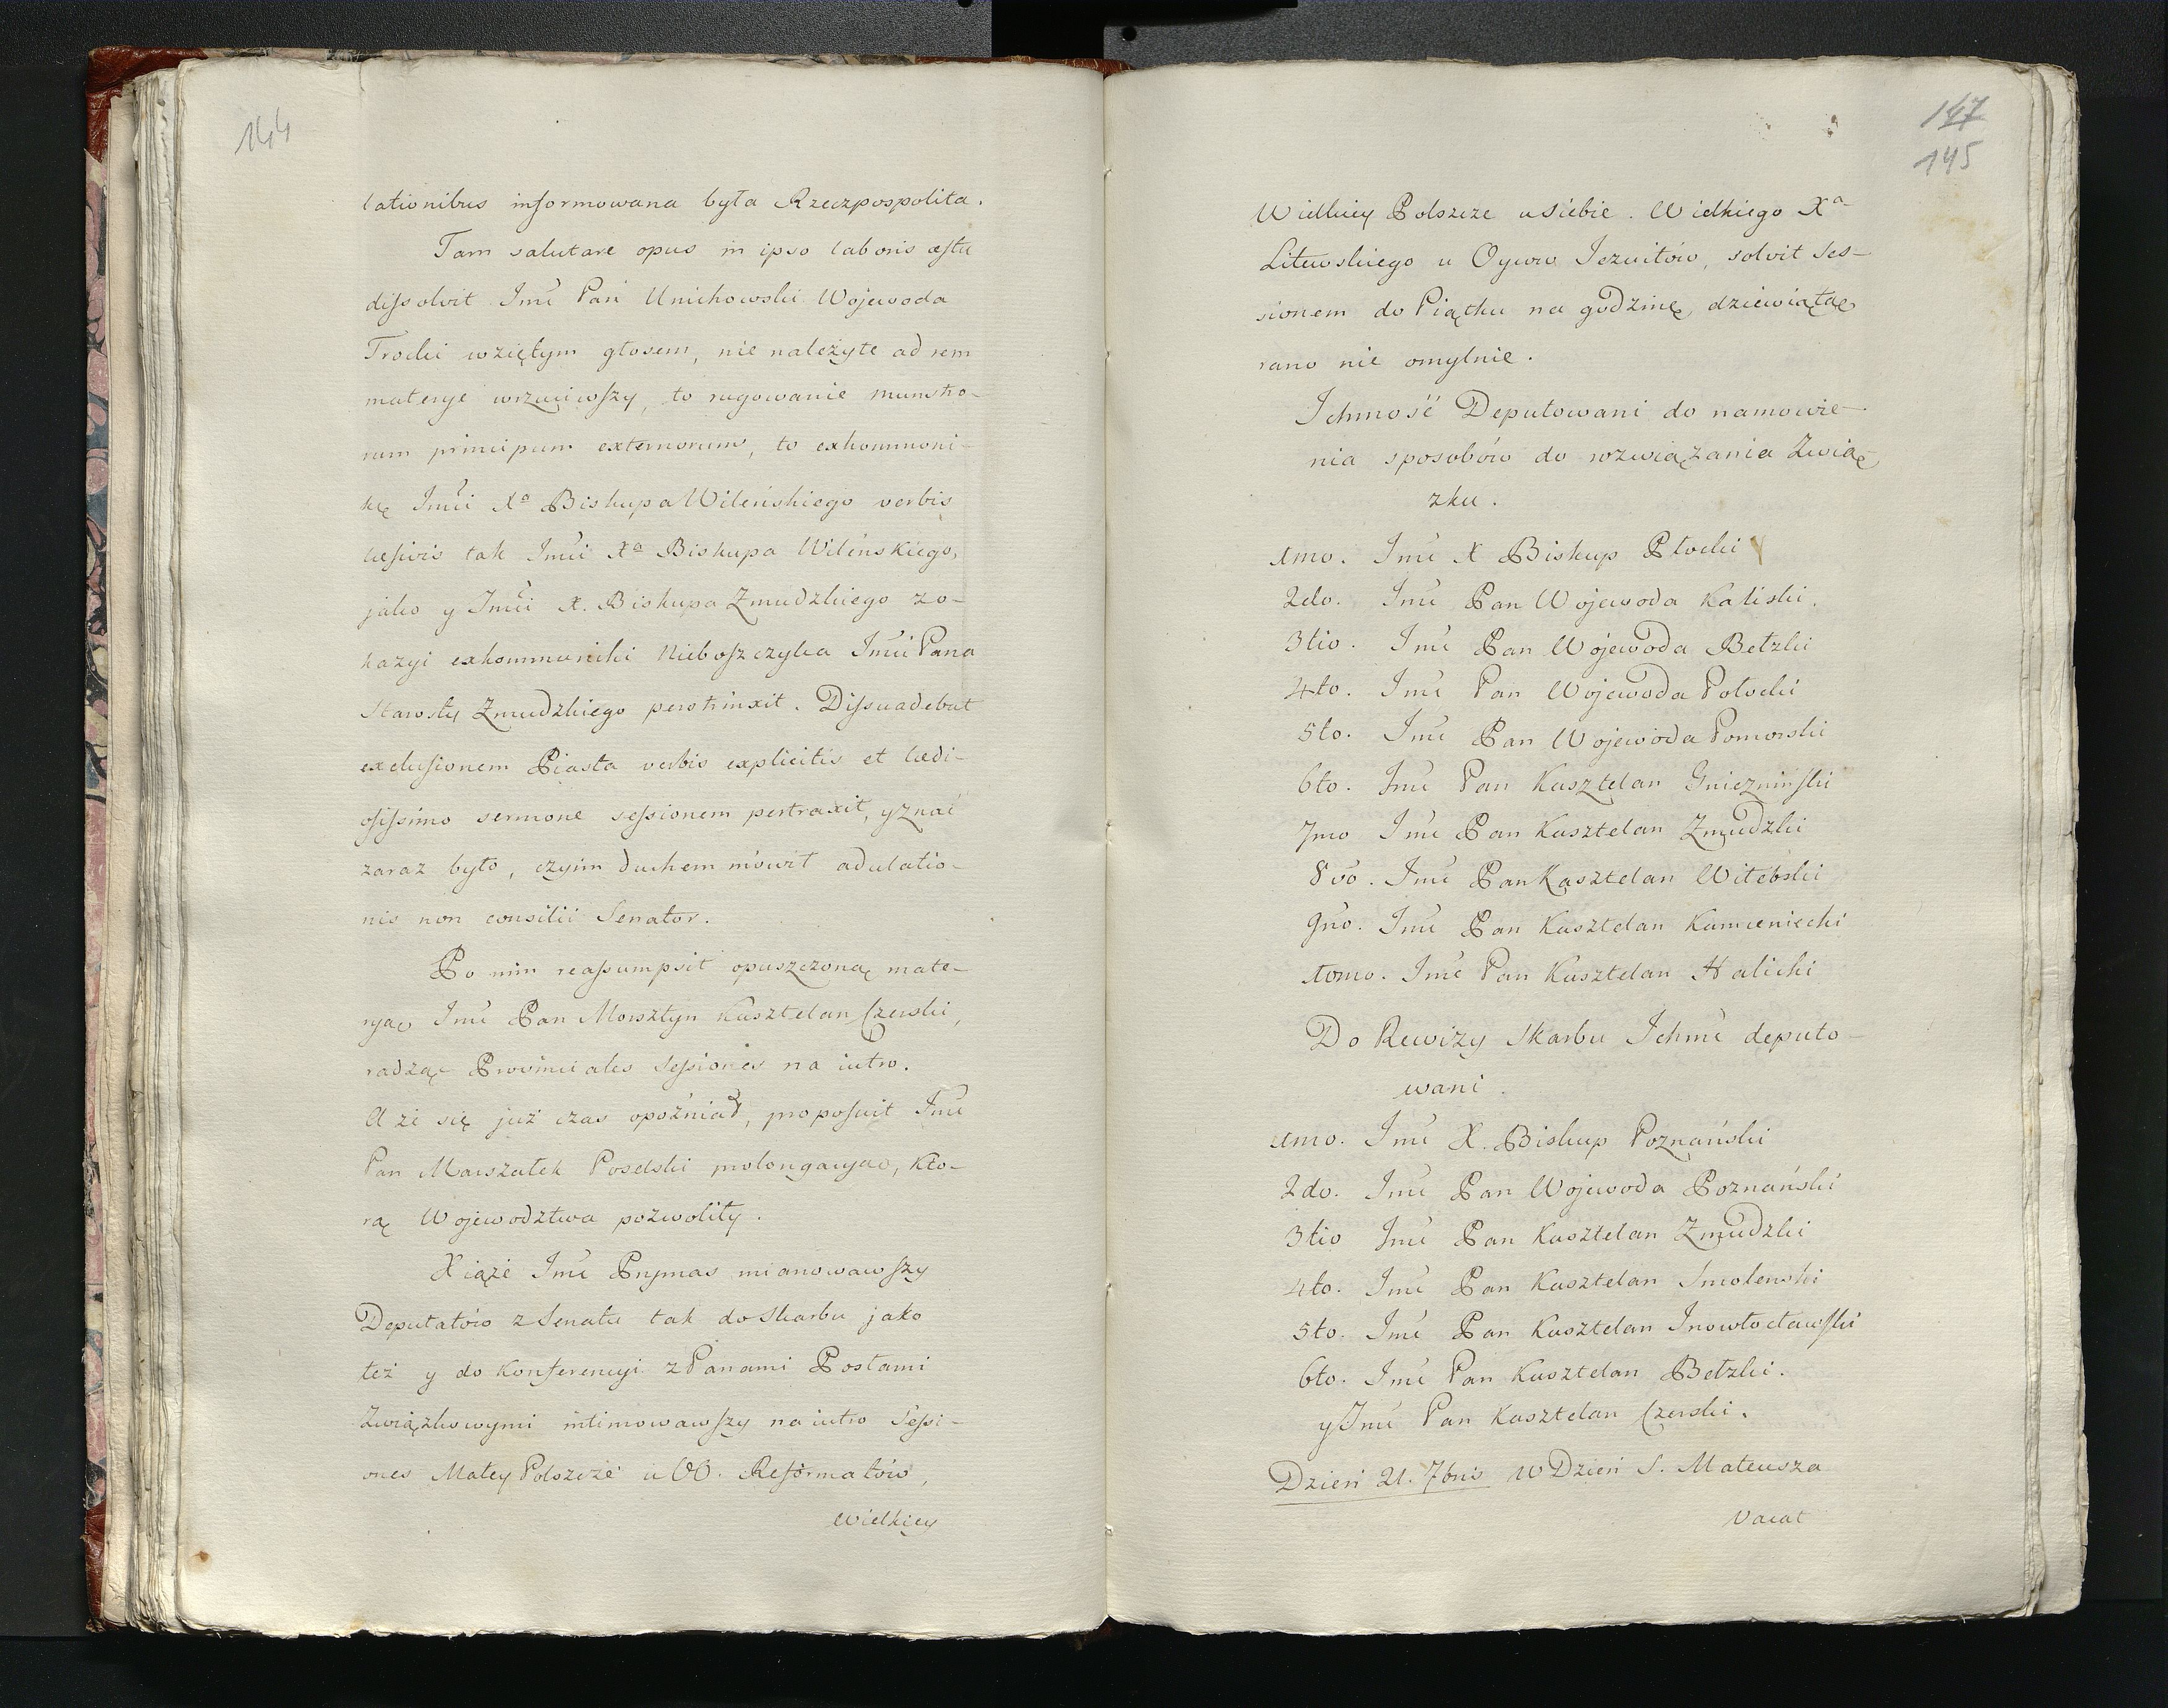 144
lationibus informowana była Rzeczpospolita.
Tam salutare opus in ipso laboris æstu
dissolvit Jmć Pan Unichowski Wojewoda
Trocki wziętym głosem, nie należyte ad rem
materye wrzuciwszy, to rugowanie munstro-
rum principum externorum, to exkommuni-
kę Jmći Xa Biskupa Wileńskiego verbis
læsivis tak Jmći Xa Biskupa Wileńskiego,
jako y Jmći X. Biskupa Zmudzkiego zo-
kazyi exkommuniki Nieboszczyka Jmći Pana
Starosty Zmudzkiego perstrinxit. Dissuadebat
exclusionem Piasta verbis explicitis et tædi-
osissimo sermone sessionem pertraxit, y znać
zaraz było, czyim duchem mówił adulatio-
nis non consilii Senator.
Po nim reassumpsit opuszczoną mate-
ryą Jmć Pan Morsztyn Kasztelan Czerski,
radząc Provinciales Sessiones na iutro.
A że się już czas opoźniał, proposuit Jmć
Pan Marszałek Poselski prolongacyą, kto-
rą Wojewodztwa pozwoliły.
Xiąże Jmć Prymas mianowawszy
Deputatów z Senatu tak do Skarbu jako
też y do Konferencyi z Panami Posłami
Związkowymi intimowawszy na iutro Sessi-
ones Małey Polszcze u OO. Reformatów,
Wielkiey
147
145
Wielkiey Polszcze u siebie. Wielkiego Xa
Litewskiego u Oyców Jezuitów, solvit Ses-
sionem do Piątku na godzinę dziewiątą
rano nie omylnie.
Ichmość Deputowani do namowie-
nia sposobów do rozwiązania Zwią-
zku.
1mo. Jmć X Biskup Płocki
2do. Jmć Pan Wojewoda Kaliski.
3tio. Jmć Pan Wojewoda Bełzki
4to. Jmć Pan Wojewoda Połocki
5to. Jmć Pan Wojewoda Pomorski
6to. Jmć Pan Kasztelan Gniezninski
7mo Jmć Pan Kasztelan Zmudzki
8vo. Jmć Pan Kasztelan Witebski
9no. Jmć Pan Kasztelan Kamieniecki
10mo. Jmć Pan Kasztelan Halicki
Do Rewizy Skarbu Ichmć deputo-
wani.
1mo. Jmć X. Biskup Poznański
2do. Jmć Pan Wojewoda Poznański
3tio Jmć Pan Kasztelan Zmudzki
4to. Jmć Pan Kasztelan Smolenski
5to. Jmć Pan Kasztelan Inowłocławski
6to. Jmć Pan Kasztelan Bełzki.
y Jmć Pan Kasztelan Czerski.
Dzień 21. 7bris W Dzień S. Mateusza
Vacat